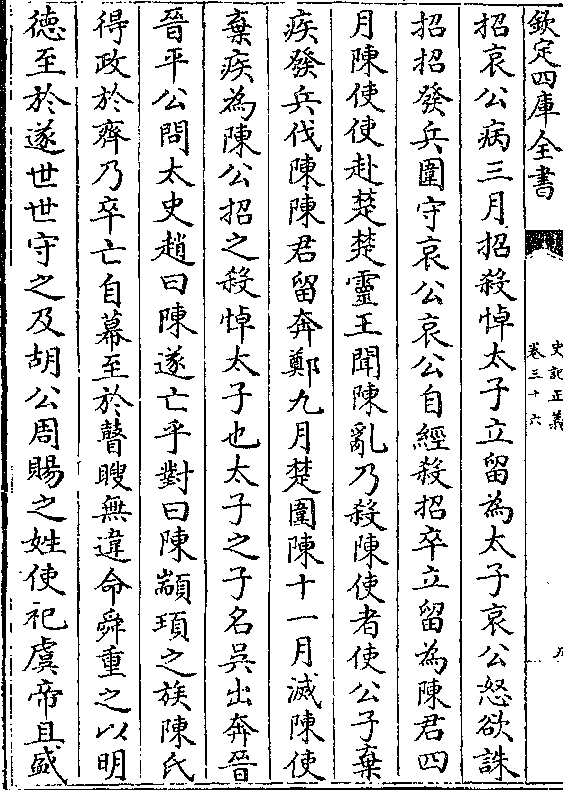 欽定四庫全書
史記正義
卷三十六
招哀公病三月招殺悼太子立留為太子哀公怒欲誅
招招發兵圍守哀公哀公自經殺招卒立留為陳君四
月陳使使赴楚楚靈王聞陳亂乃殺陳使者使公子棄
疾發兵伐陳陳君留奔鄭九月楚圍陳十一月滅陳使
棄疾為陳公招之殺悼太子也太子之子名吳出奔晉
晉平公問太史趙曰陳遂亡乎對曰陳顓頊之族陳氏
得政於齊乃卒亡自幕至於瞽瞍無違命舜重之以明
德至於遂世世守之及胡公周賜之姓使祀虞帝且盛